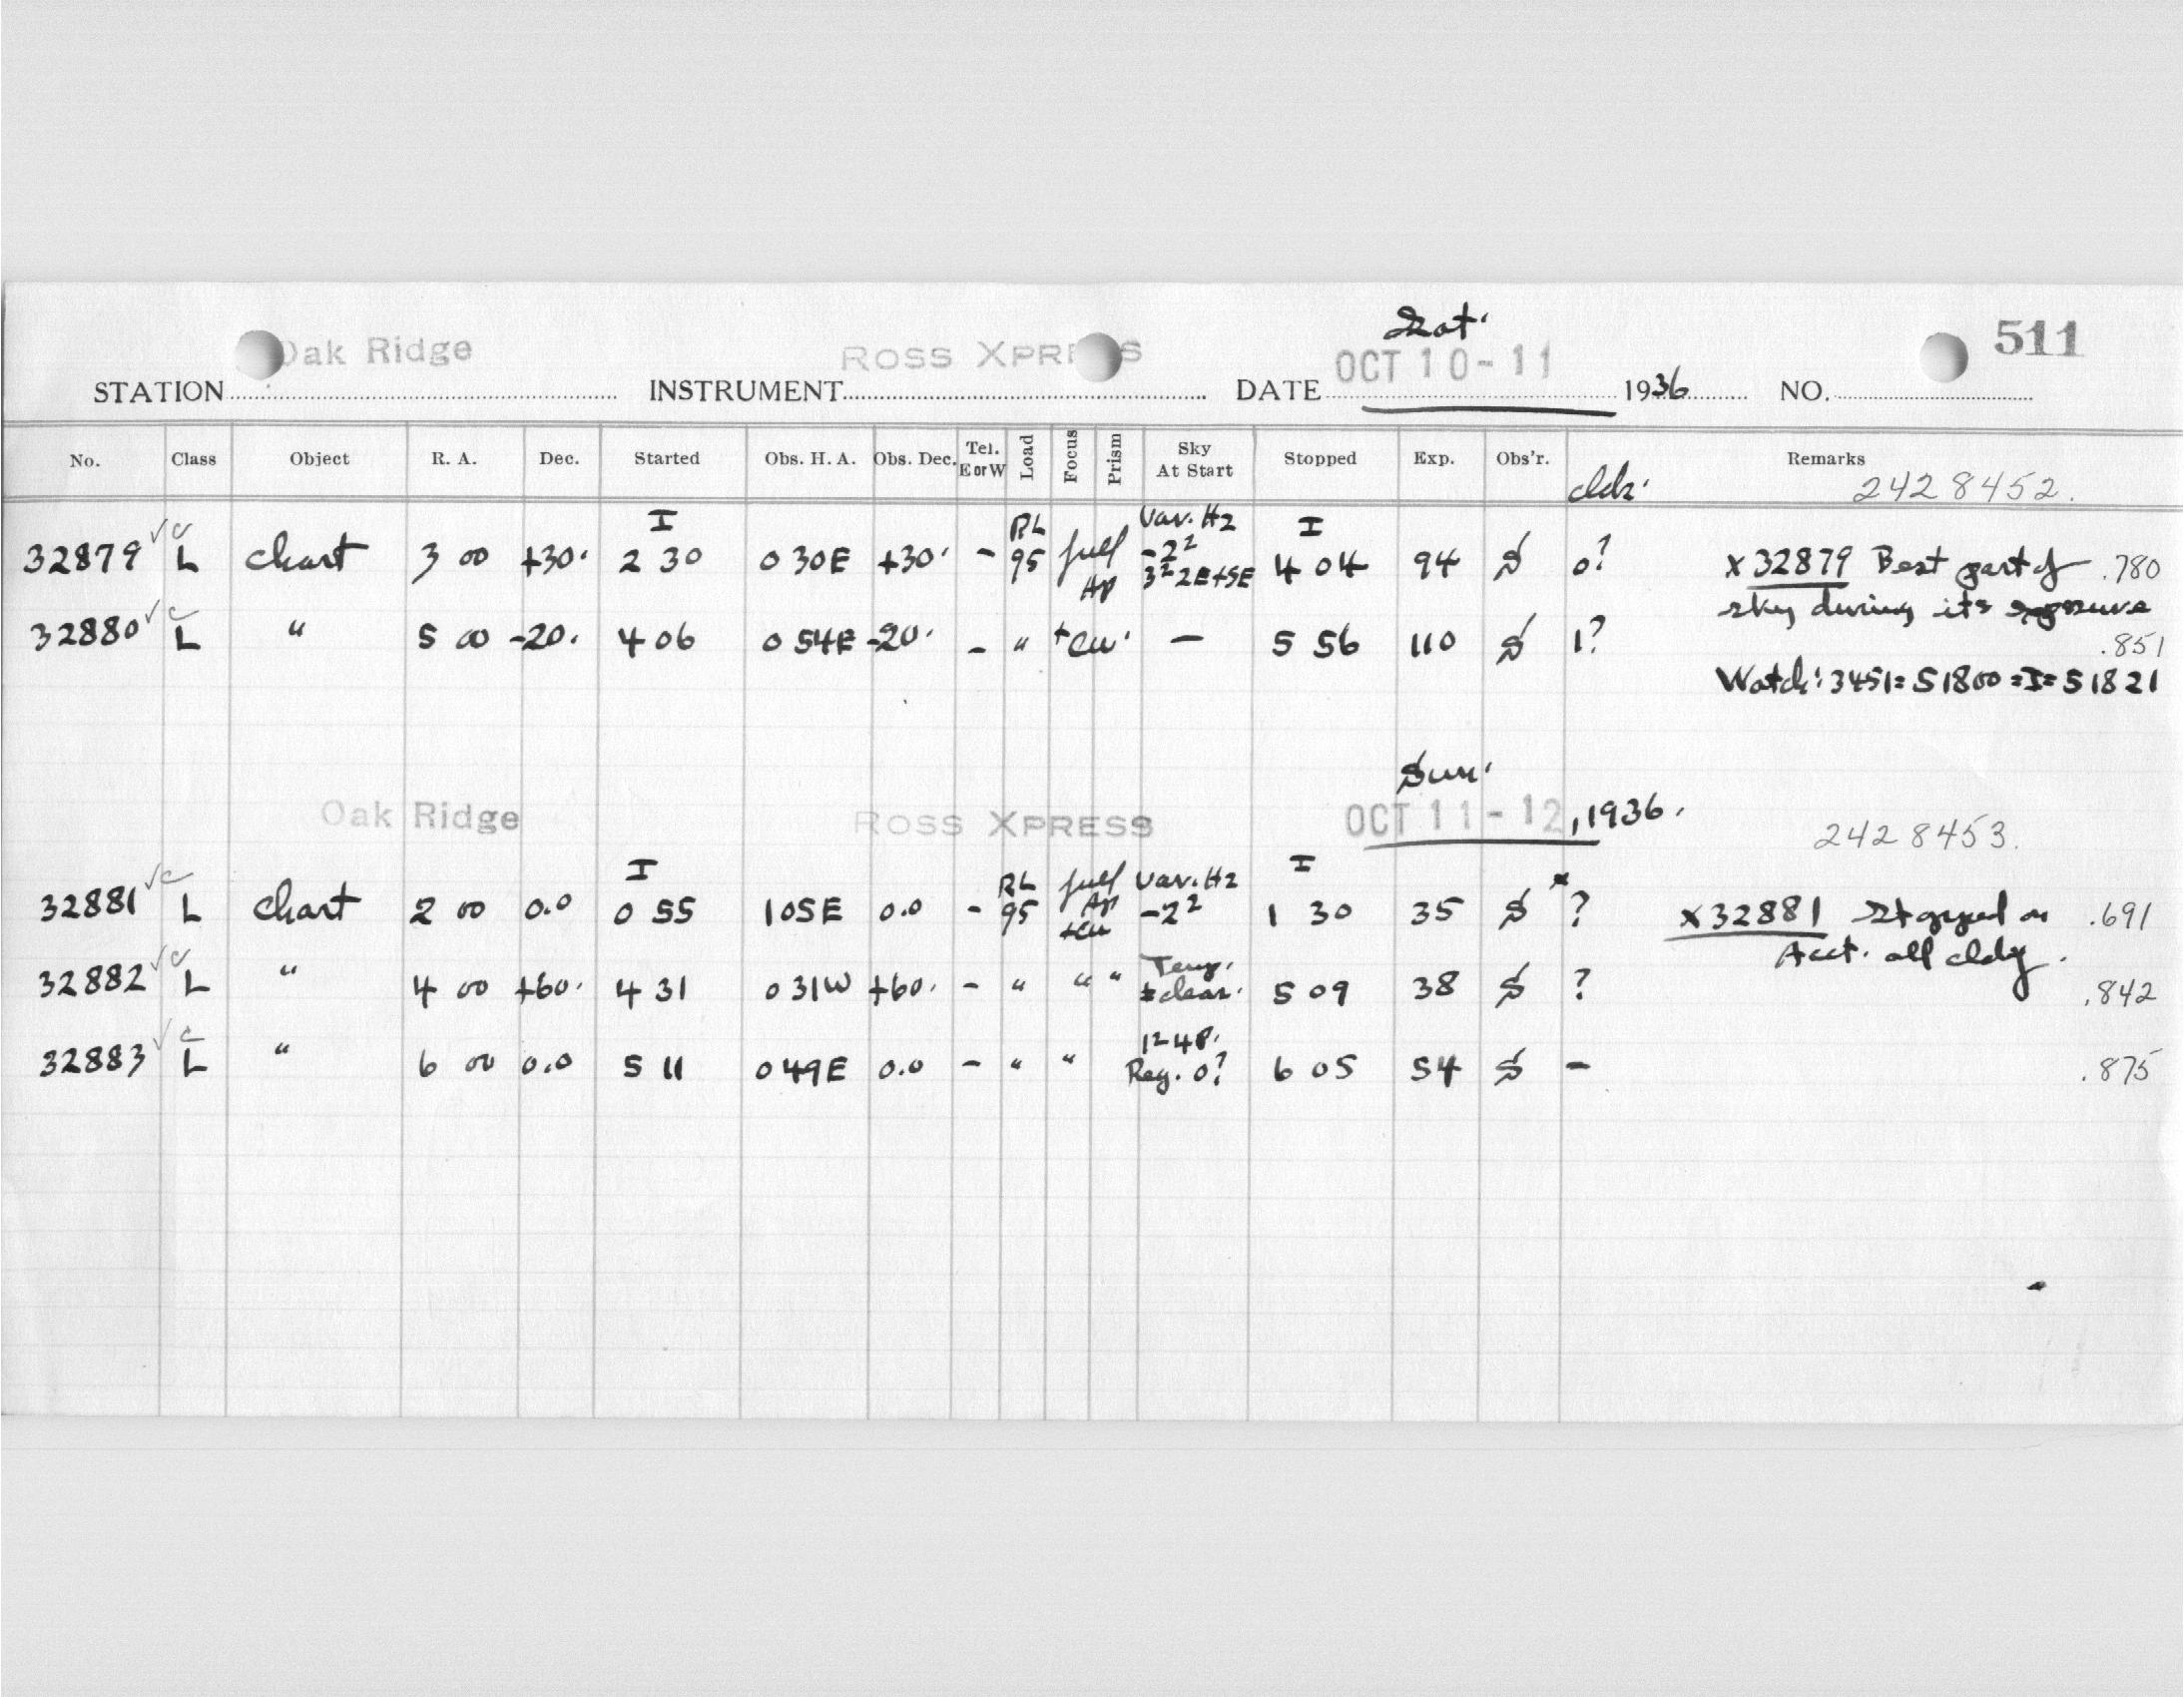 Sat.
Oak Ridge ROSS XPRESS OCT 10-11 511
STATION INSTRUMENT DATE 1936 NO.
No. Class Object R. A. Dec. Started Obs. H. A. Obs. Dec. Tel. E or W Load Focus Prism Sky At Start Stopped Exp. Obs'r. Remarks
cldr. 2428452.
I RL Var. H2 I
32879 √c L chart 3 00 +30. 2 30 0 30E +30. - 95 full Ap -2² 3² 2E+5E 4 04 94 S 0? x 32879 Best part of .780
sky during its exposure
32880 √c L " 5 00 -20. 4 06 0 54E -20. - " +cu. — 5 56 110 S 1? .851
Watch: 3451= 51800 =I= 51821
Sun.
Oak Ridge ROSS XPRESS OCT 11-12, 1936.
2428453.
I RL full Var. H2 I
32881 √c L chart 2 00 0.0 0 55 1 05E 0.0 - 95 Ap +cu -2² 1 30 35 S x ? x 32881 Stopped on .691
Acct. all cldy.
32882 √c L " 4 00 +60. 4 31 0 31W +60. - " " " clear. 5 09 38 S ? .842
32883 √c L " 6 00 0.0 5 11 0 49E 0.0 - " " Reg. 0? 6 05 54 S - .875